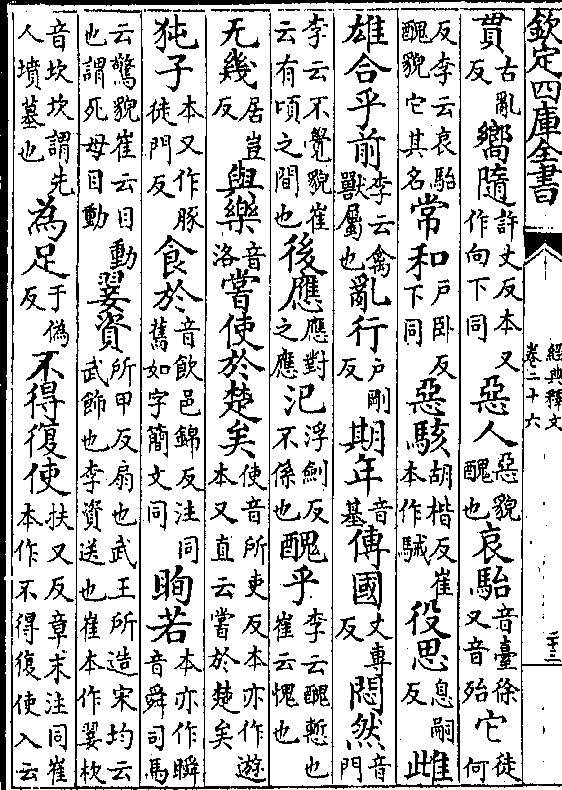 欽定四庫全書
經典釋文
卷二十六
二十三
貫古亂反嚮隨許丈反本又作向下同惡人惡貌醜也哀駘音臺徐又音殆它徒何
反李云哀駘醜貌它其名常和戶卧反下同惡駭胡楷反崔本作駴役思息嗣反雌
雄合乎前李云禽獸屬也亂行戶剛反期年音基傳國丈專反悶然音門
李云不覺貌崔云有頃之間也後應應對之應氾浮劍反不係也醜乎李云醜慙也崔云愧也
无幾居豈反與樂音洛嘗使於楚矣使音所吏反本亦作遊本又直云嘗於楚矣
㹠子本又作豚徒門反食於音飲邑錦反注同舊如字簡文同眴若本亦作瞬音舜司馬
云驚貌崔云目動也謂死母目動翣資所甲反扇也武王所造宋均云武飾也李資送也崔本作翣杴
音坎坎謂先人墳墓也為足于偽反不得復使扶又反章末注同崔本作不得復使入云